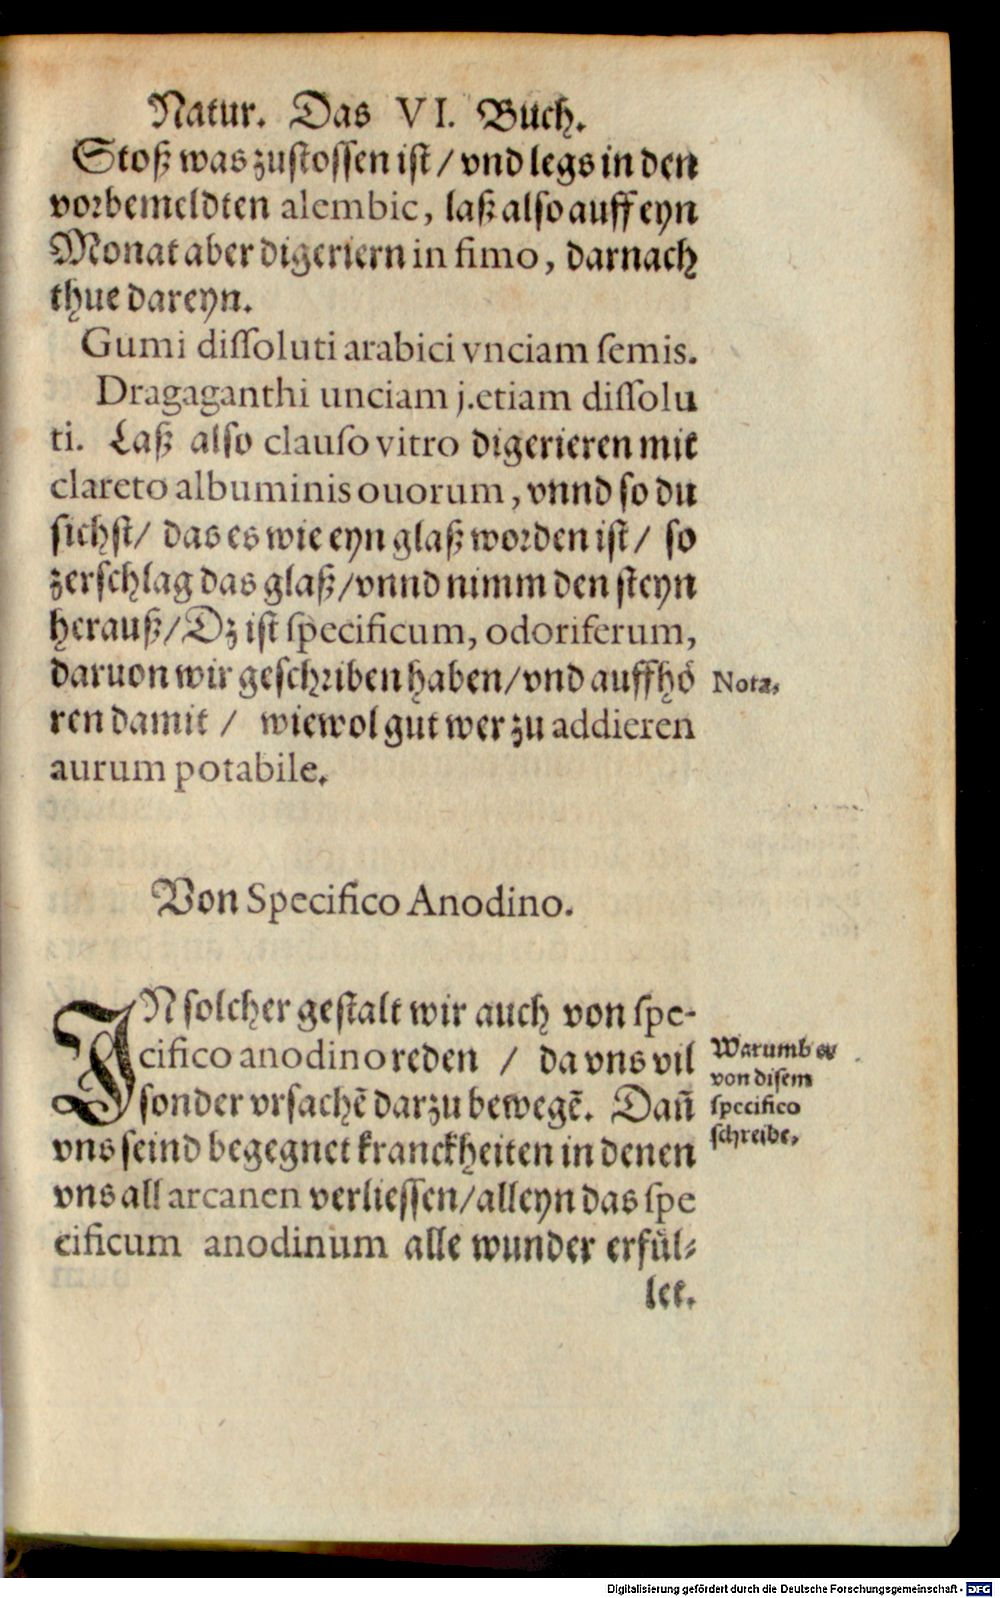 Natur. Das VI. Buch.
Stoß was zustossen ist / vnd legs in den
vorbemeldten alembic, laß also auff eyn
Monat aber digeriern in fimo, darnach
thue dareyn.
Gumi dissoluti arabici vnciam semis.
Dragaganthi unciam j. etiam dissolu
ti. Laß also clauso vitro digerieren mit
clareto albuminis ouorum, vnnd so du
sichst / das es wie eyn glaß worden ist / so
zerschlag das glaß / vnnd nimm den steyn
herauß / Dz ist specificum, odoriferum,
daruon wir geschriben haben / vnd auffhö
Nota,
ren damit / wiewol gut wer zu addieren
aurum potabile.
Von Specifico Anodino.
IN solcher gestalt wir auch von spe-
cifico anodino reden / da vns vil
sonder vrsachẽ darzu bewegẽ. Dañ
vns seind begegnet kranckheiten in denen
vns all arcanen verliessen / alleyn das spe
cificum anodinum alle wunder erfül-
let.
Warumb er
von disem
specifico
schreibe,
Digitalisierung gefördert durch die Deutsche Forschungsgemeinschaft - DFG